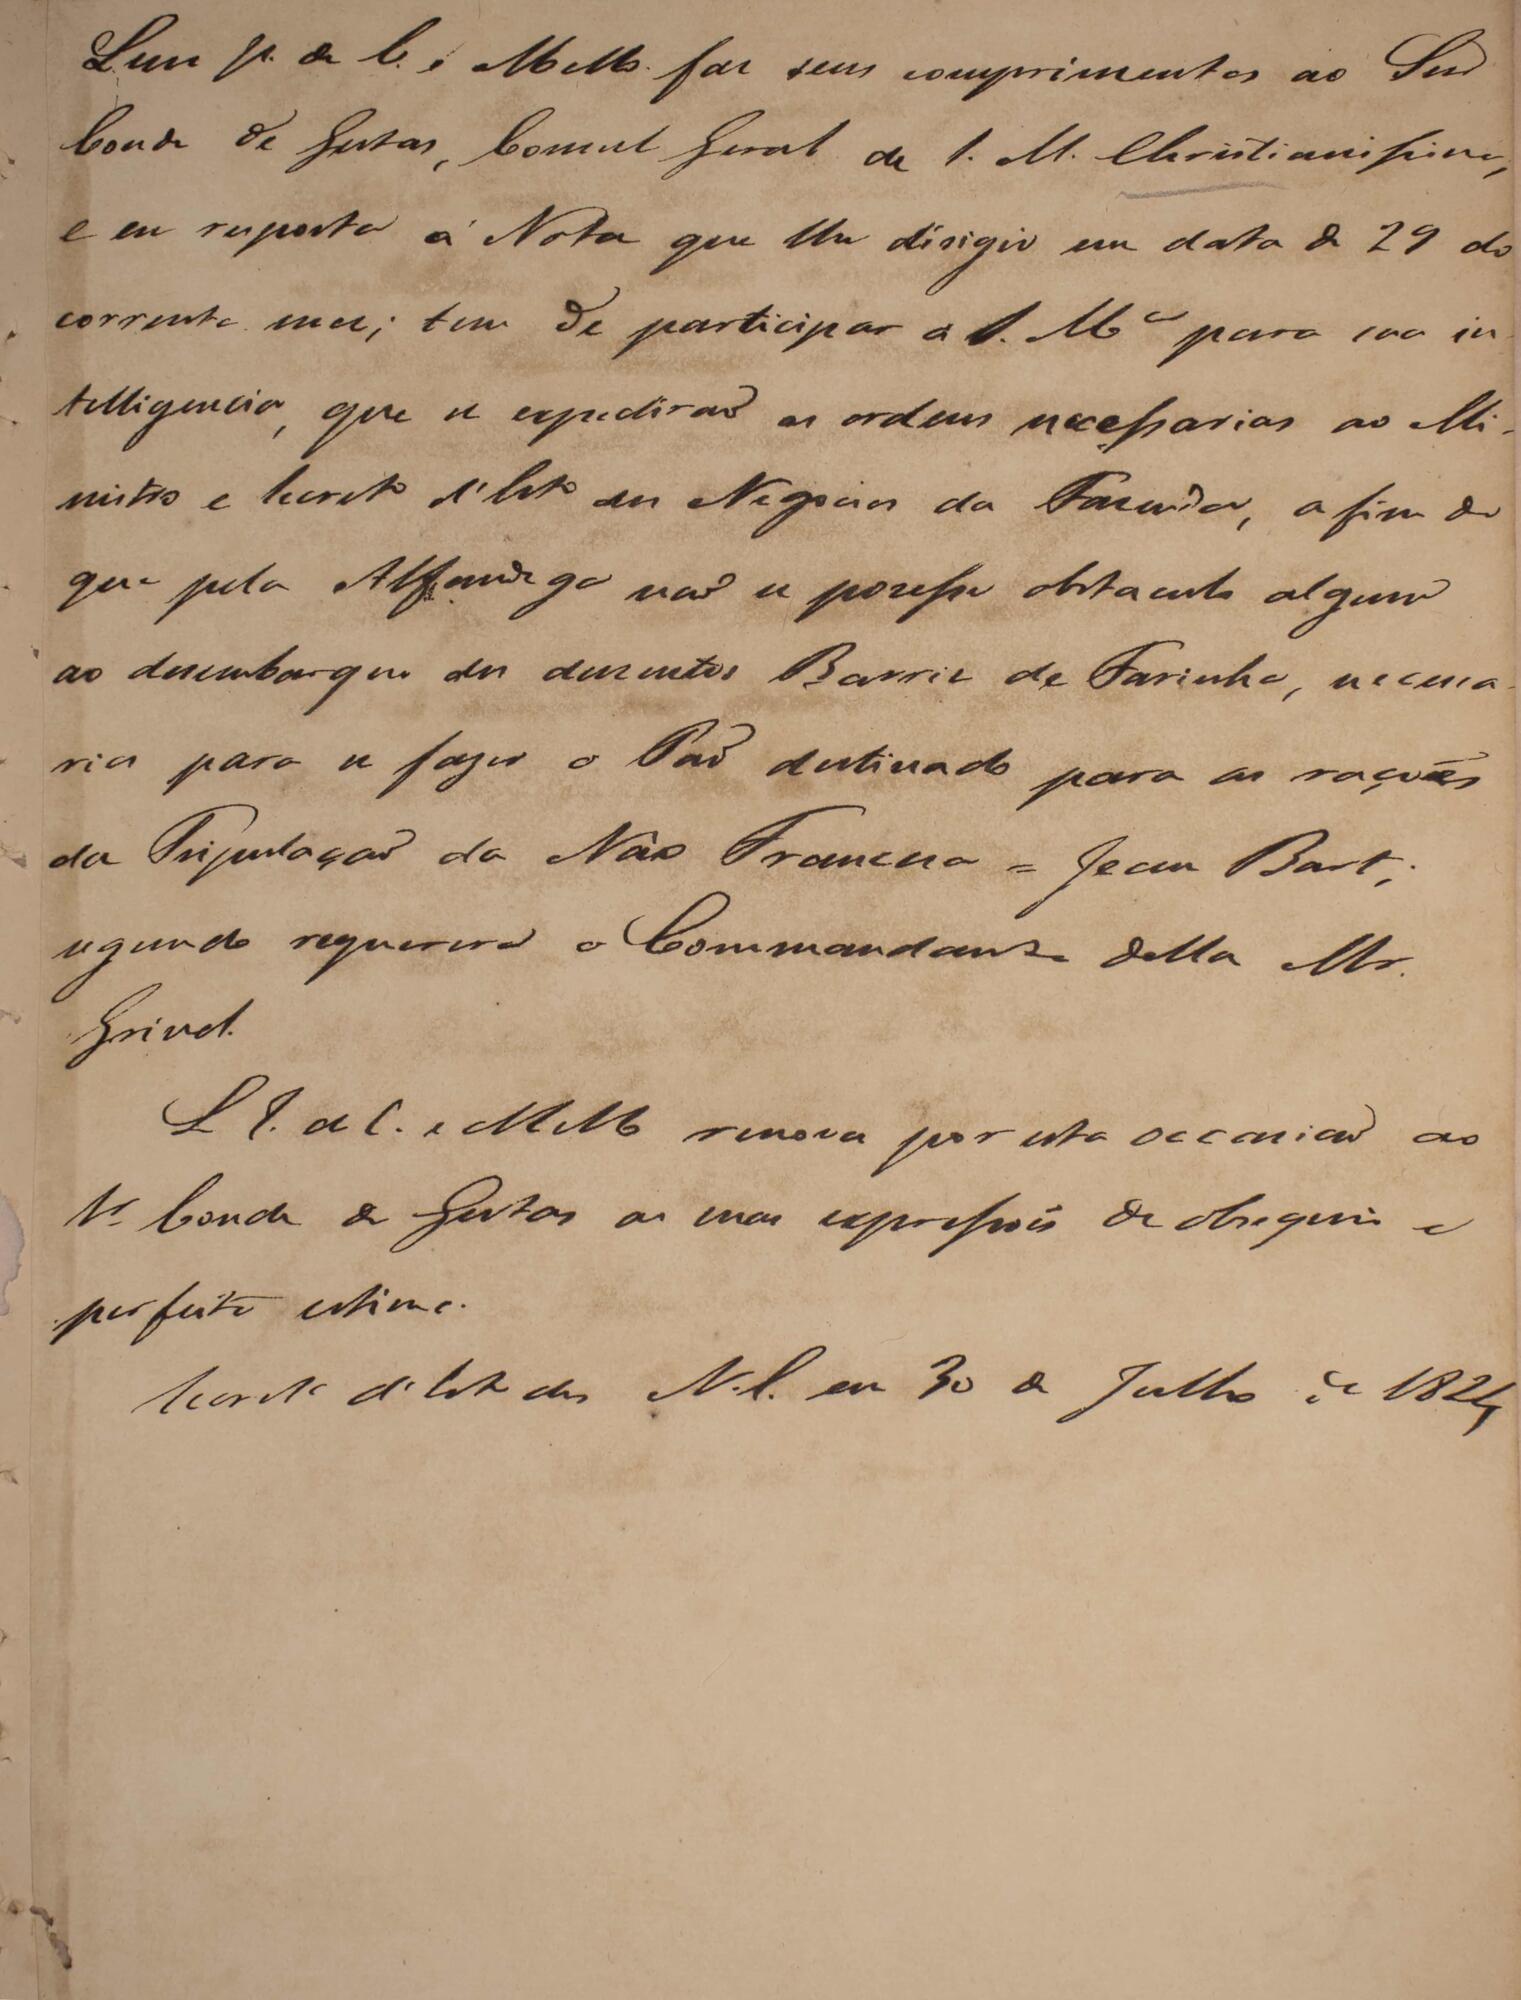 Luis J. de C. e Mello. faz seus comprimentos ao Snr
Conde de Gestas, Consul Geral de S. M. Christianissima,
e em resposta á Nota que lhe dirigio em data de 29 do
corrente mez; tem de participar a S. M.ce para sua in-
telligencia, que se expedirão as ordens necessarias ao Mi-
nistro e Secreto d'Esto dos Negocios da Fazenda, a fim de
que pela Alfandega não se pozesse obstaculo algum
ao desembarque dos duzentos Barris de Farinha, necessa-
rios para se fazer o Pão destinado para as rações
da Tripulação da Náo Franceza = Jean Bart,
segundo requerera o Commandante della Mr.
Grivel.
L J. de C. e Mello renova por esta occasião ao
Sr Conde de Gestas as suas expressões de obsequio e
perfeita estima.
Secreta d'Esto dos N. E. em 30 de Julho de 1824